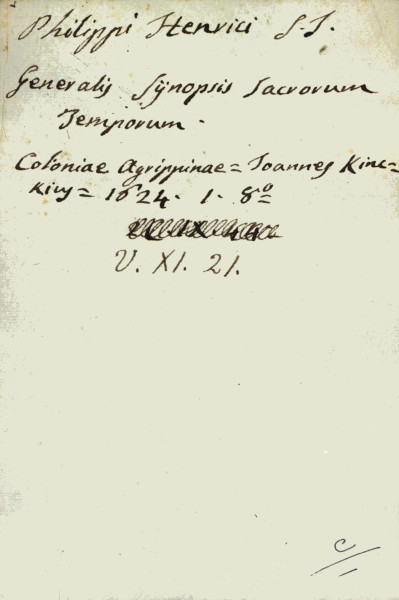 Philippi Henrici S.J.
Generalis Synopsis Sacrorum
Temporum.
Coloniae Agrippinae = Joannes Kinc=
Kius = 1624. 1. 8º
V. XI. 21.
C